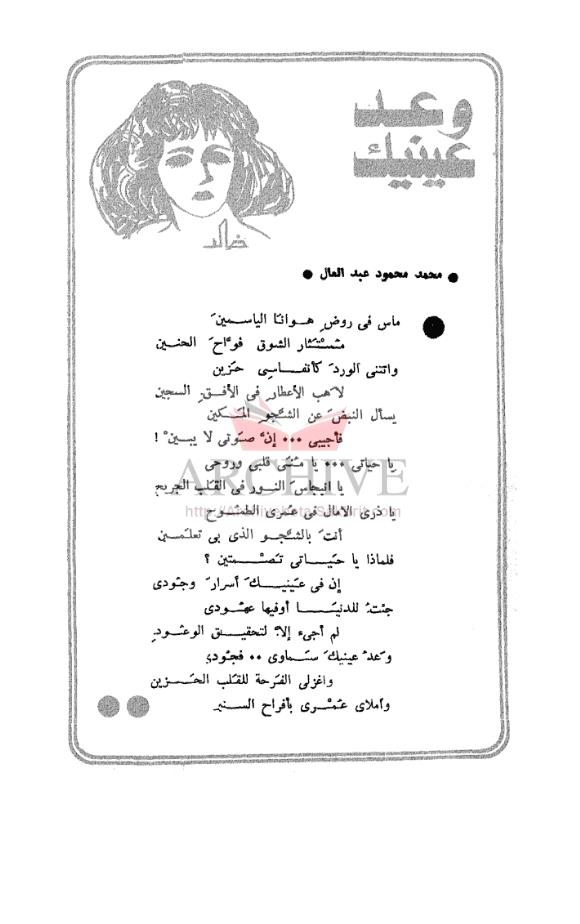 وعد
عينيك
خالد
● محمد محمود عبد العال ●
ماس فى روضِ هوانا الياسمينَ
مُسْتَثار الشوق فوّاحَ الحنين
وانثنى الوردَ كأنفاسِى حزين
لاهب الأعطار فى الأفقِ السجين
يسأل النبضَ عن الشَّجوِ المَكين
فأجيبى ... إنَّ صَوتى لا يبينْ !
يا حياتى ... يا مُنَى قلبى وروحى
يا انبجاسَ النور فى القلب الجريح
ARCHIVE
يا ذرى الآمال فى عُمرى الطموح
أنتَ بالشَّجو الذى بى تعلَمين
فلماذا يا حَياتى تَصْمتين ؟
إن فى عَينيكَ أسرارَ وجُودى
جئتُ للدنيا أوفيها عهودى
لم أجىء إلاَّ لتحقيق الوعُودِ
وَعدُ عينيكَ سَماوى .. فجُودى
واغزلى الفرحة للقلب الحَزين
وأملاى عُمْرى بأفراح السنين